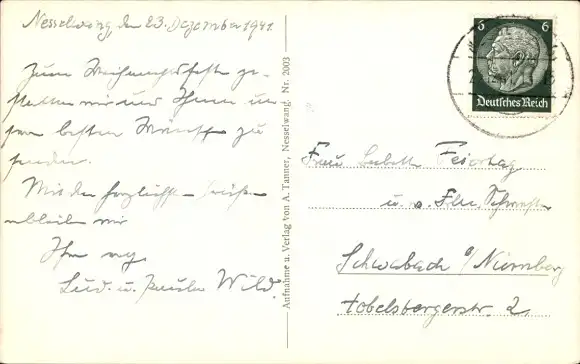 Nesselwang, den 23. Dezember 1941.
Zum Weihnachtsfeste ge-
statten wir uns Ihnen un-
sere besten Wünsche zu
senden.
Mit den herzlichsten Grüßen
verbleiben wir
Ihre
Lud. u. Paula Wild.
Aufnahme u. Verlag von A. Tanner, Nesselwang. Nr. 2003
6 6
Deutsches Reich
Frau Babett Feiertag
u. a. Frl.
Schwabach b/Nürnberg
Fobelsbergerstr. 2